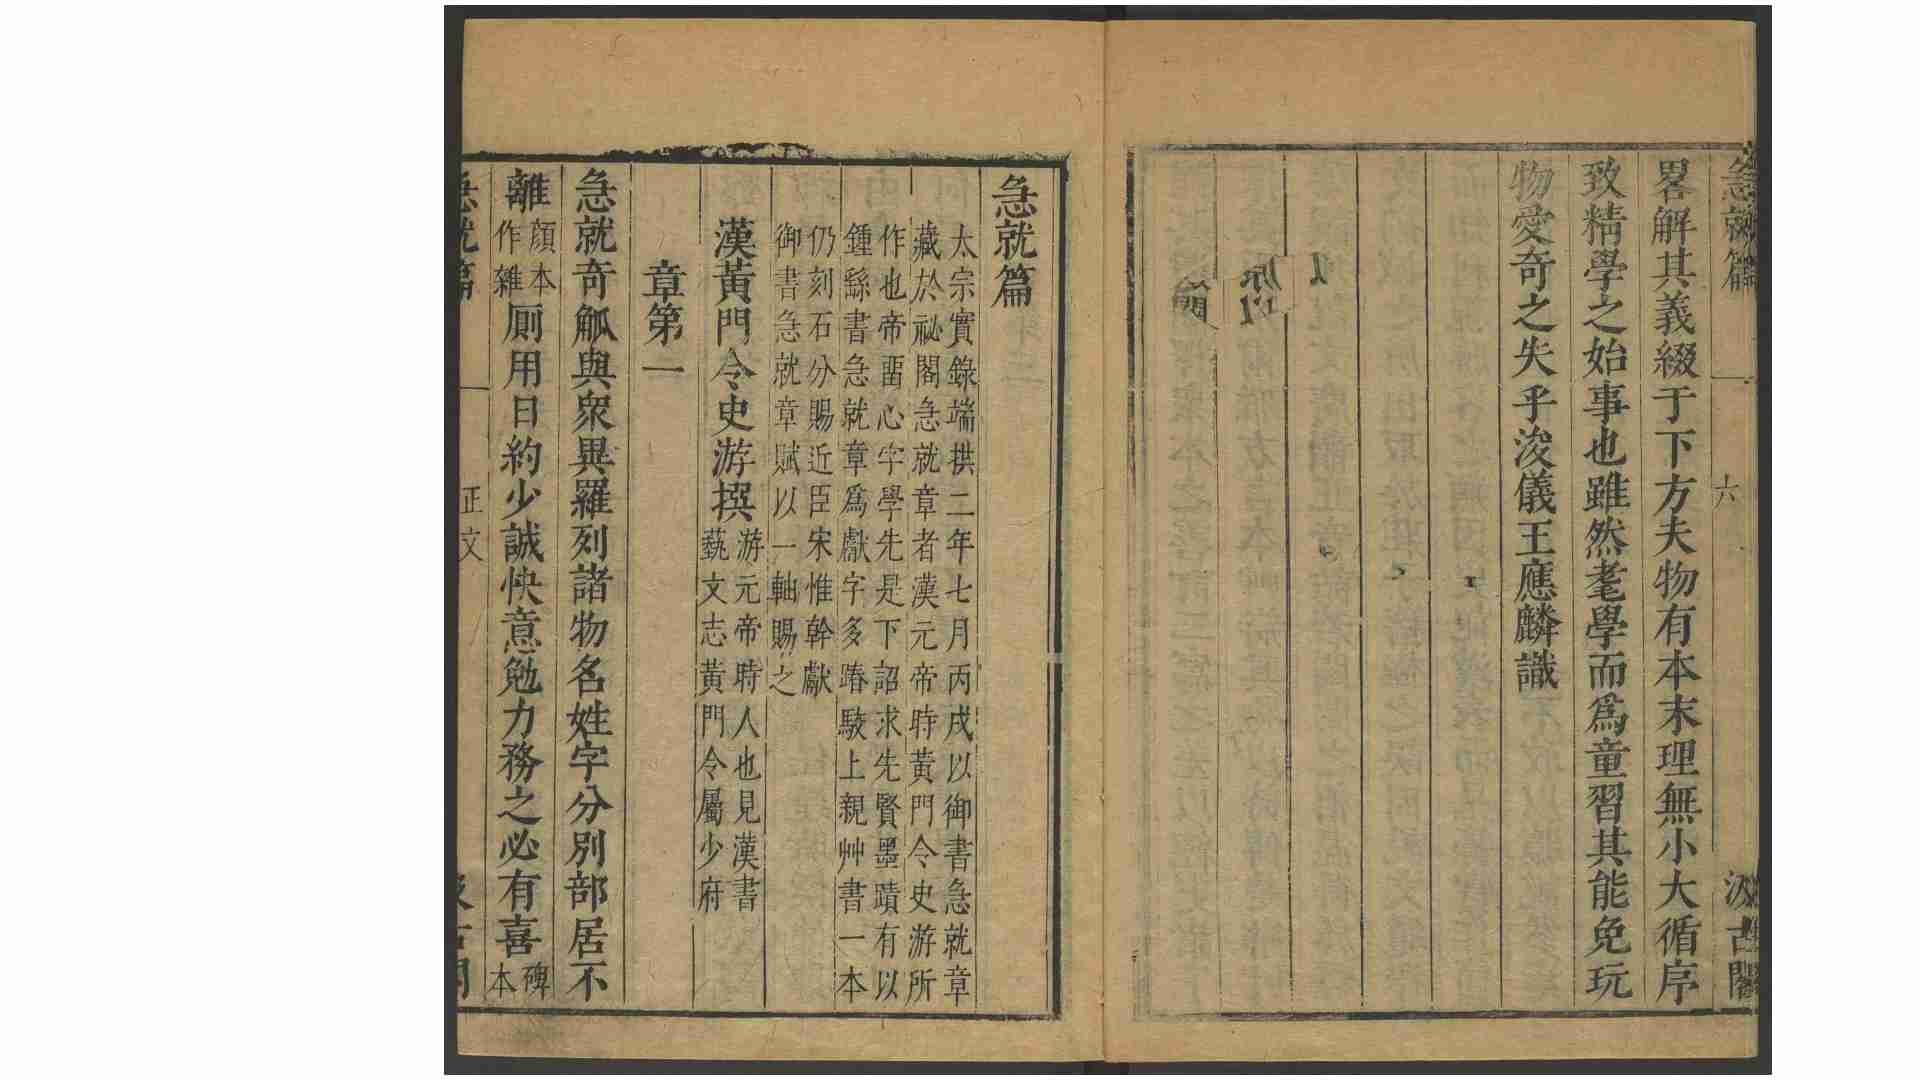 急就篇
六
汲古閣
畧解其義綴于下方夫物有本末理無小大循序
致精學之始事也雖然耄學而爲童習其能免玩
物愛奇之失乎浚儀王應麟識
急就篇
太宗實錄端拱二年七月丙戌以御書急就章
藏於祕閣急就章者漢元帝時黃門令史游所
作也帝畱心字學先是下詔求先賢墨蹟有以
鍾繇書急就章爲獻字多踳駮上親艸書一本
仍刻石分賜近臣宋惟幹獻
御書急就章賦以一軸賜之
漢黃門令史游撰
游元帝時人也見漢書
藝文志黃門令屬少府
章第一
急就奇觚與衆異羅列諸物名姓字分別部居不
離顏本作雜厠用日約少誠快意勉力務之必有喜碑本
急就篇
正文
汲古閣